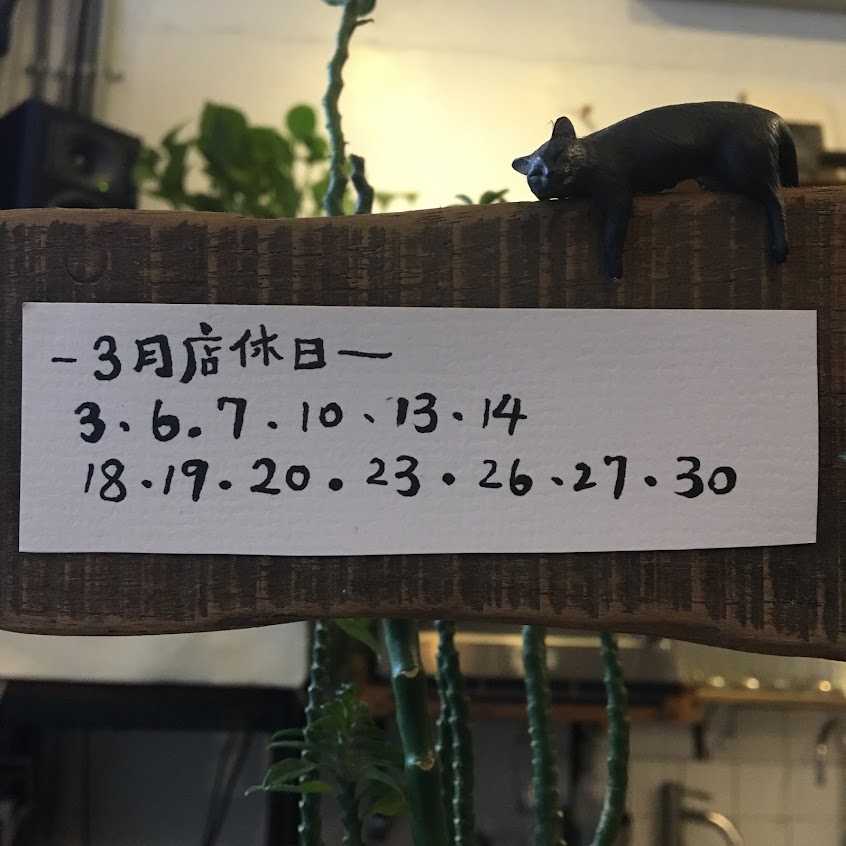 -3月店休日一
3、6.7.10、13.14
18.19.20.23.26.27.30